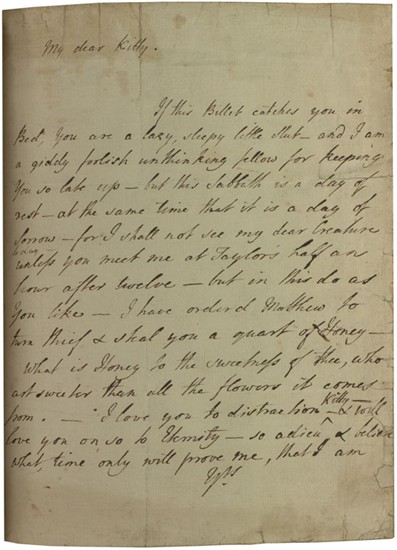 My dear Kitty.
If this Billet catches you in
Bed, You are a lazy, sleepy little slut – and I am
a giddy foolish unthinking fellow for keeping
You so late up – but this Sabbath is a day of
rest – at the same time that it is a day of
sorrow – for I shall not see my dear Creature
to day
unless you meet me at Taylor's half an
hour after twelve – but in this do as
You like – I have orderd Matthew to
turn thief & steal you a quart of Honey –
What is Honey to the sweetness of thee, who
art sweeter than all the flowers it comes
from. – I love you to distraction Kitty – & will
love you on so to Eternity – so adieu & believe
what time only will prove me, that I am
Yrs